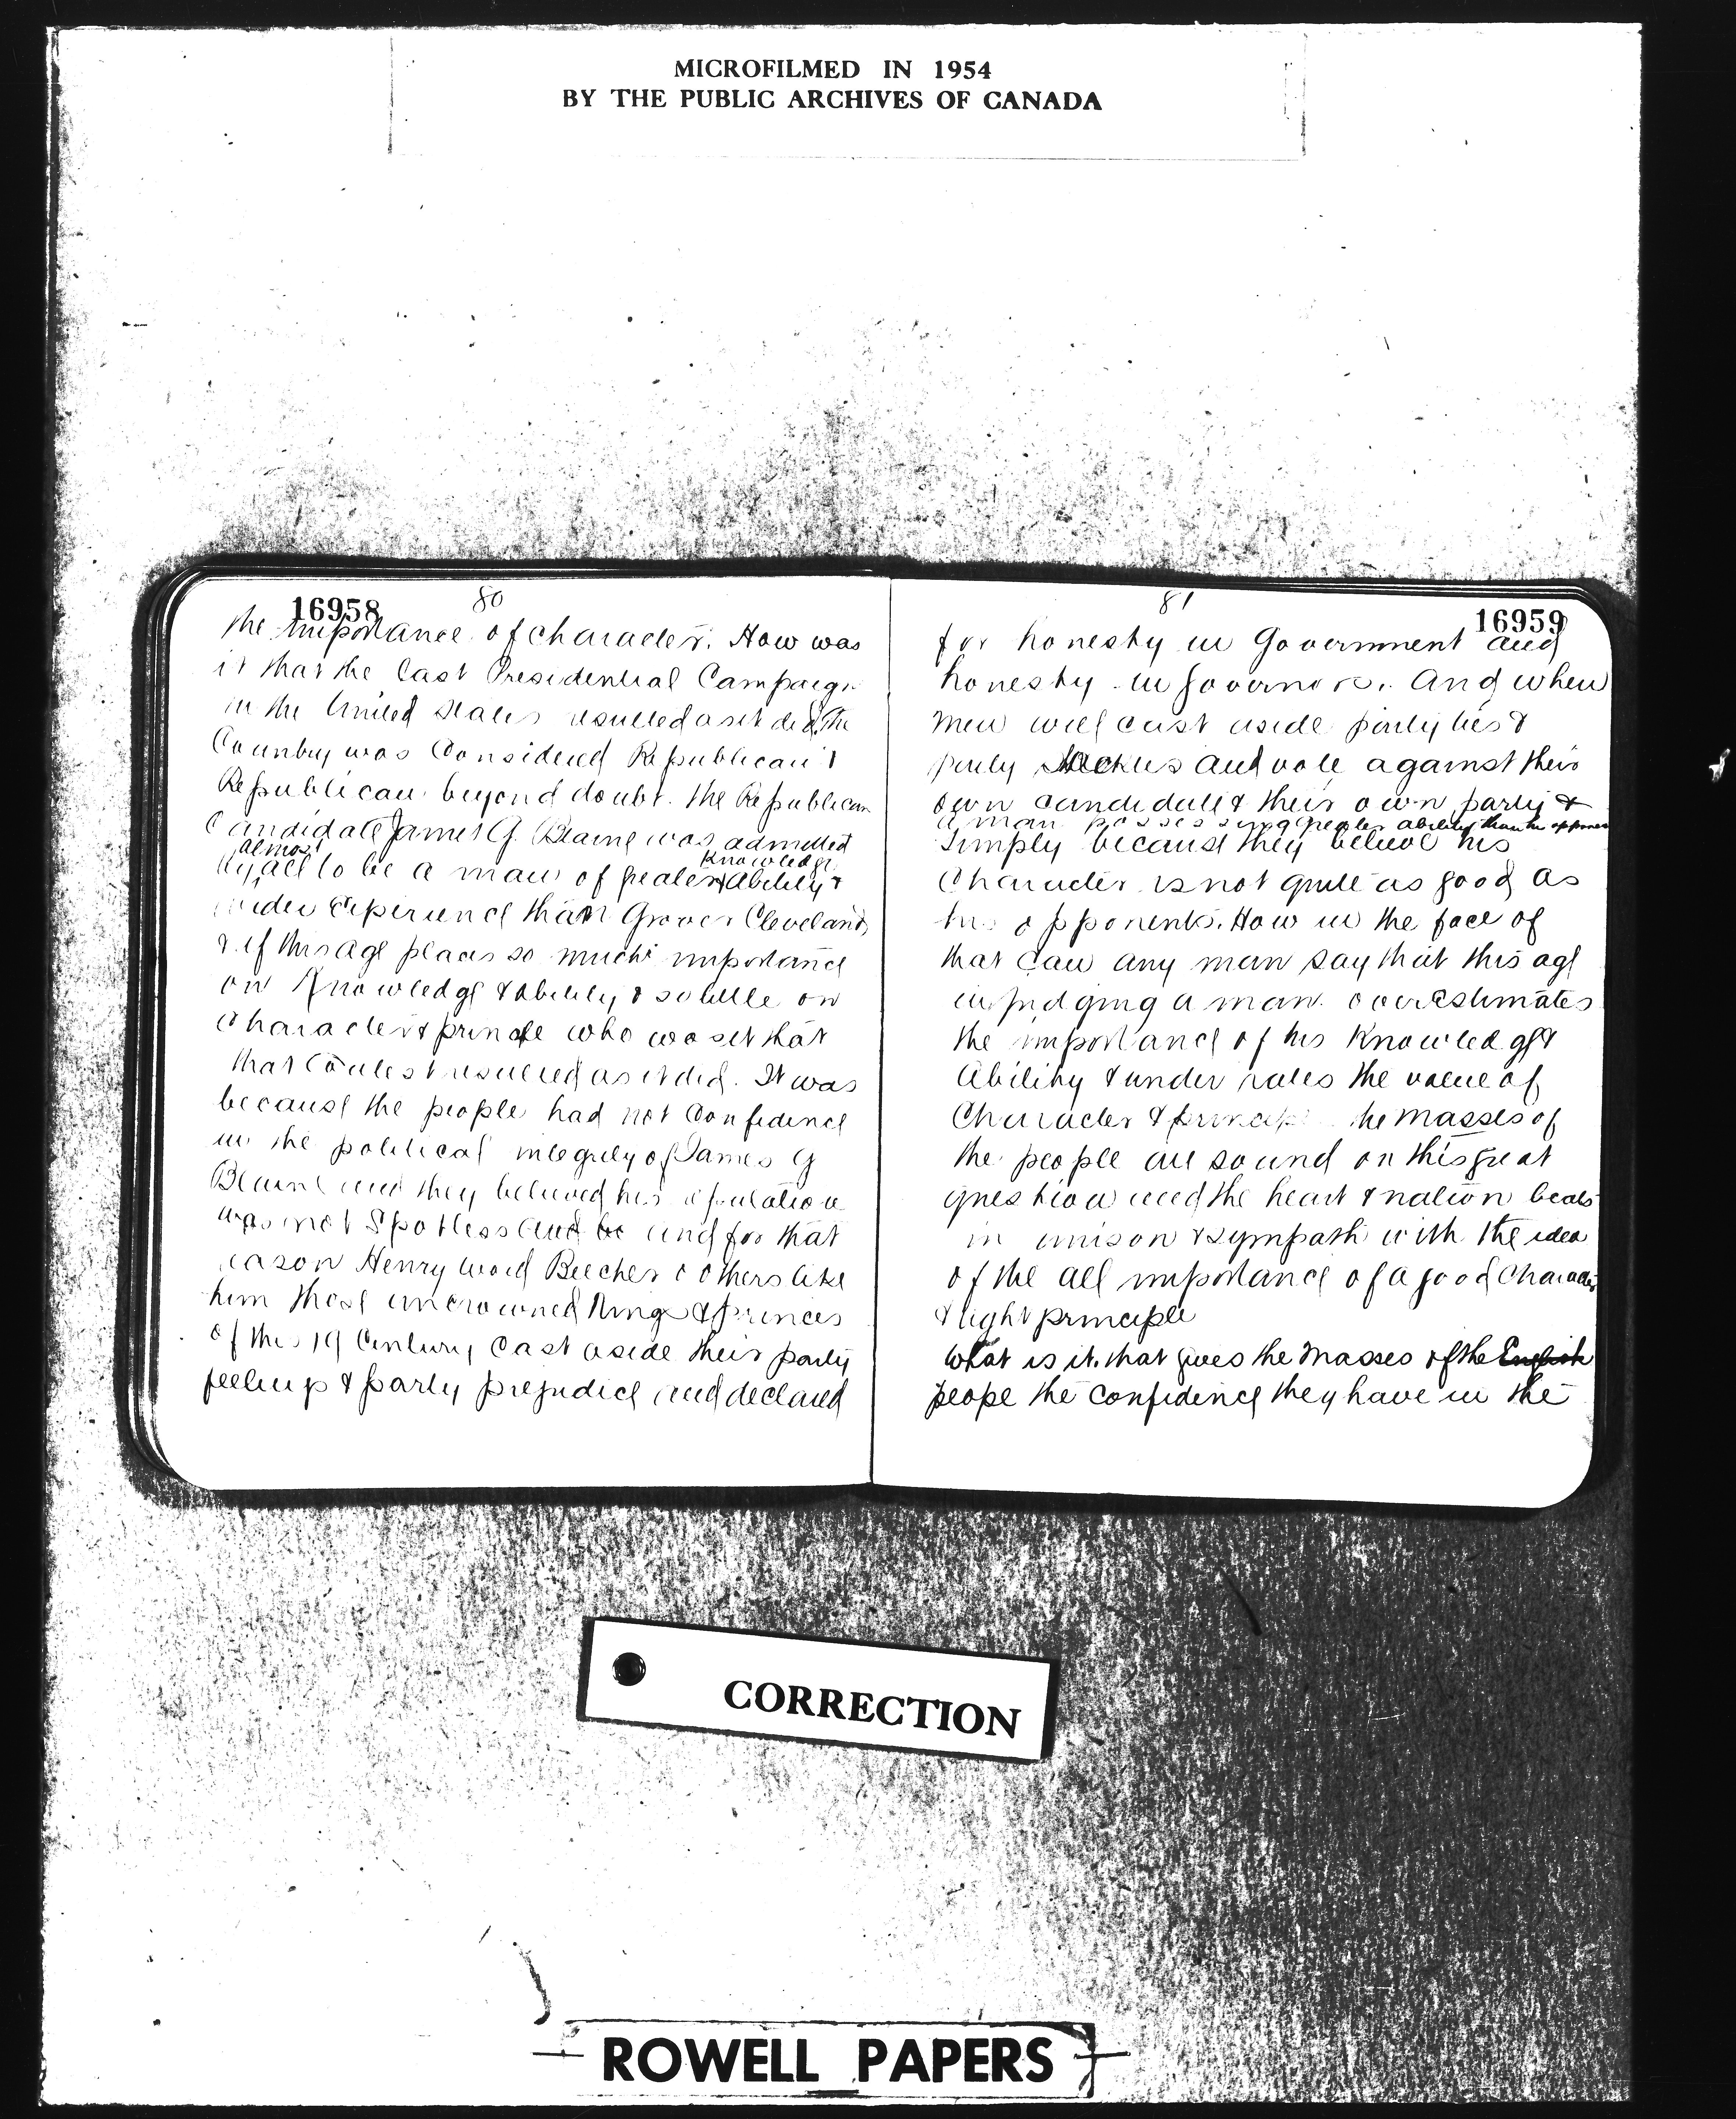 MICROFILMED IN 1954
BY THE PUBLIC ARCHIVES OF CANADA
16958
80
the importance of character. How was
it that the last Presidential Campaign
in the United States resulted as it did. The
Country was Considered Republican &
Republican beyond doubt. the Republican
Candidate James G. Blaine was admitted
almost
by all to be a man of greater
Knowledge
& Ability &
wider Experience than Grover Cleveland,
& if this age places so much importance
on Knowledge & ability & so little on
Character & princple who was it that
that Contest resulted as it did. It was
because the people had not Confidence
in the political integrity of James G
Blaine and they believed his reputation
was not Spotless and be and for that
reason Henry Ward Beecher & others like
him those uncrowned Kings & princes
of this 19 Century Cast aside their party
feelings & party prejudice and declared
81
16959
for honesty in Government and
honesty in Governors. And when
men will cast aside party ties &
party and vote against their
own candidate & their own party &
a man possessing greater ability than his opponent
Simply because they believe his
Character is not quite as good as
his opponents. How in the face of
that can any man say that this age
in judging a man overestimates
the importance of his Knowledge &
Ability & under rates the value of
Character & principle the masses of
the people are sound on this great
question and the heart & nation beats
in unison & sympath with the idea
of the all importance of a good Character
& right principle
What is it that gives the masses of the English
peope the confidence they have in the
CORRECTION
ROWELL PAPERS